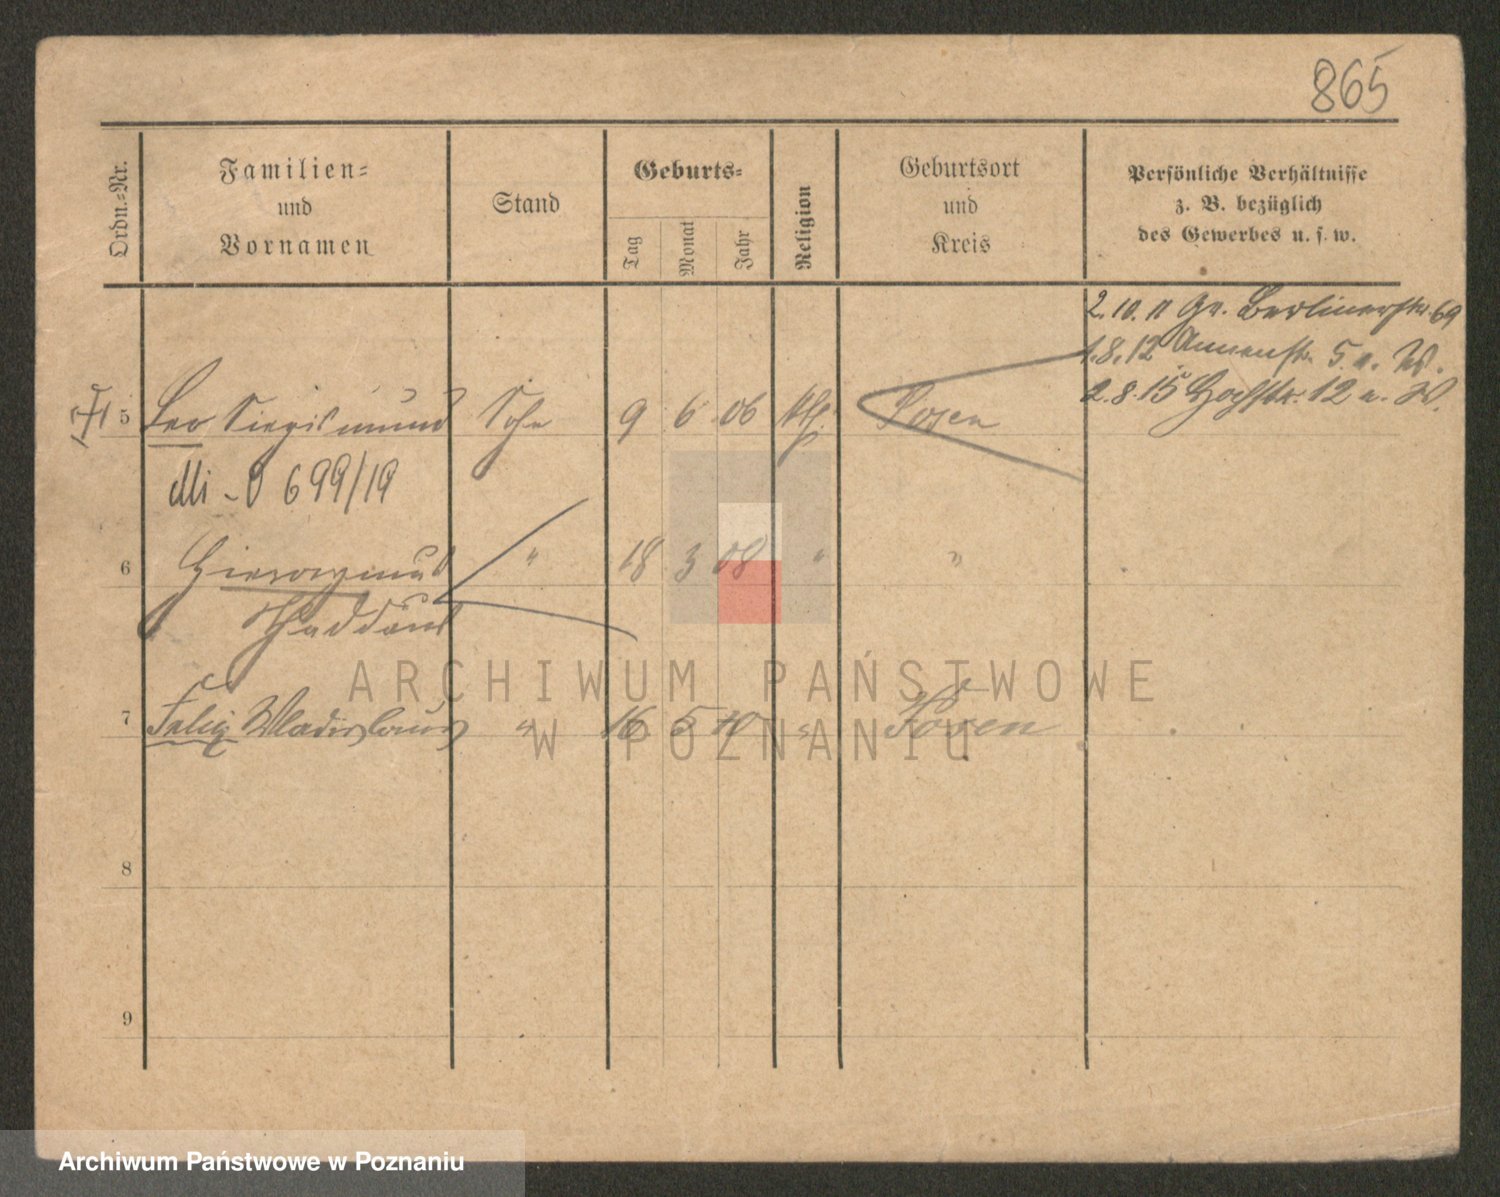 865
Ordn.-Nr.
Familien-
und
Vornamen
Stand
Geburts-
Tag
Monat
Jahr
Religion
Geburtsort
und
Kreis
Persönliche Verhältnisse
z. B. bezüglich
des Gewerbes u. s. w.
2. 10. 11 Gr. Berlinerstr. 69
1. 8. 12 Annenstr. 5 a. W.
2. 8. 15 Hochstr. 12 a. W.
5 Leo Siegismund Sohn 9 6 06 kth. Posen
699/19
6 Hieronymus " 18 3 08 " "
Thaddäus
7 Felix Wladislaus " 16 5 10 " Posen
8
9
ARCHIWUM PAŃSTWOWE
W POZNANIU
Archiwum Państwowe w Poznaniu